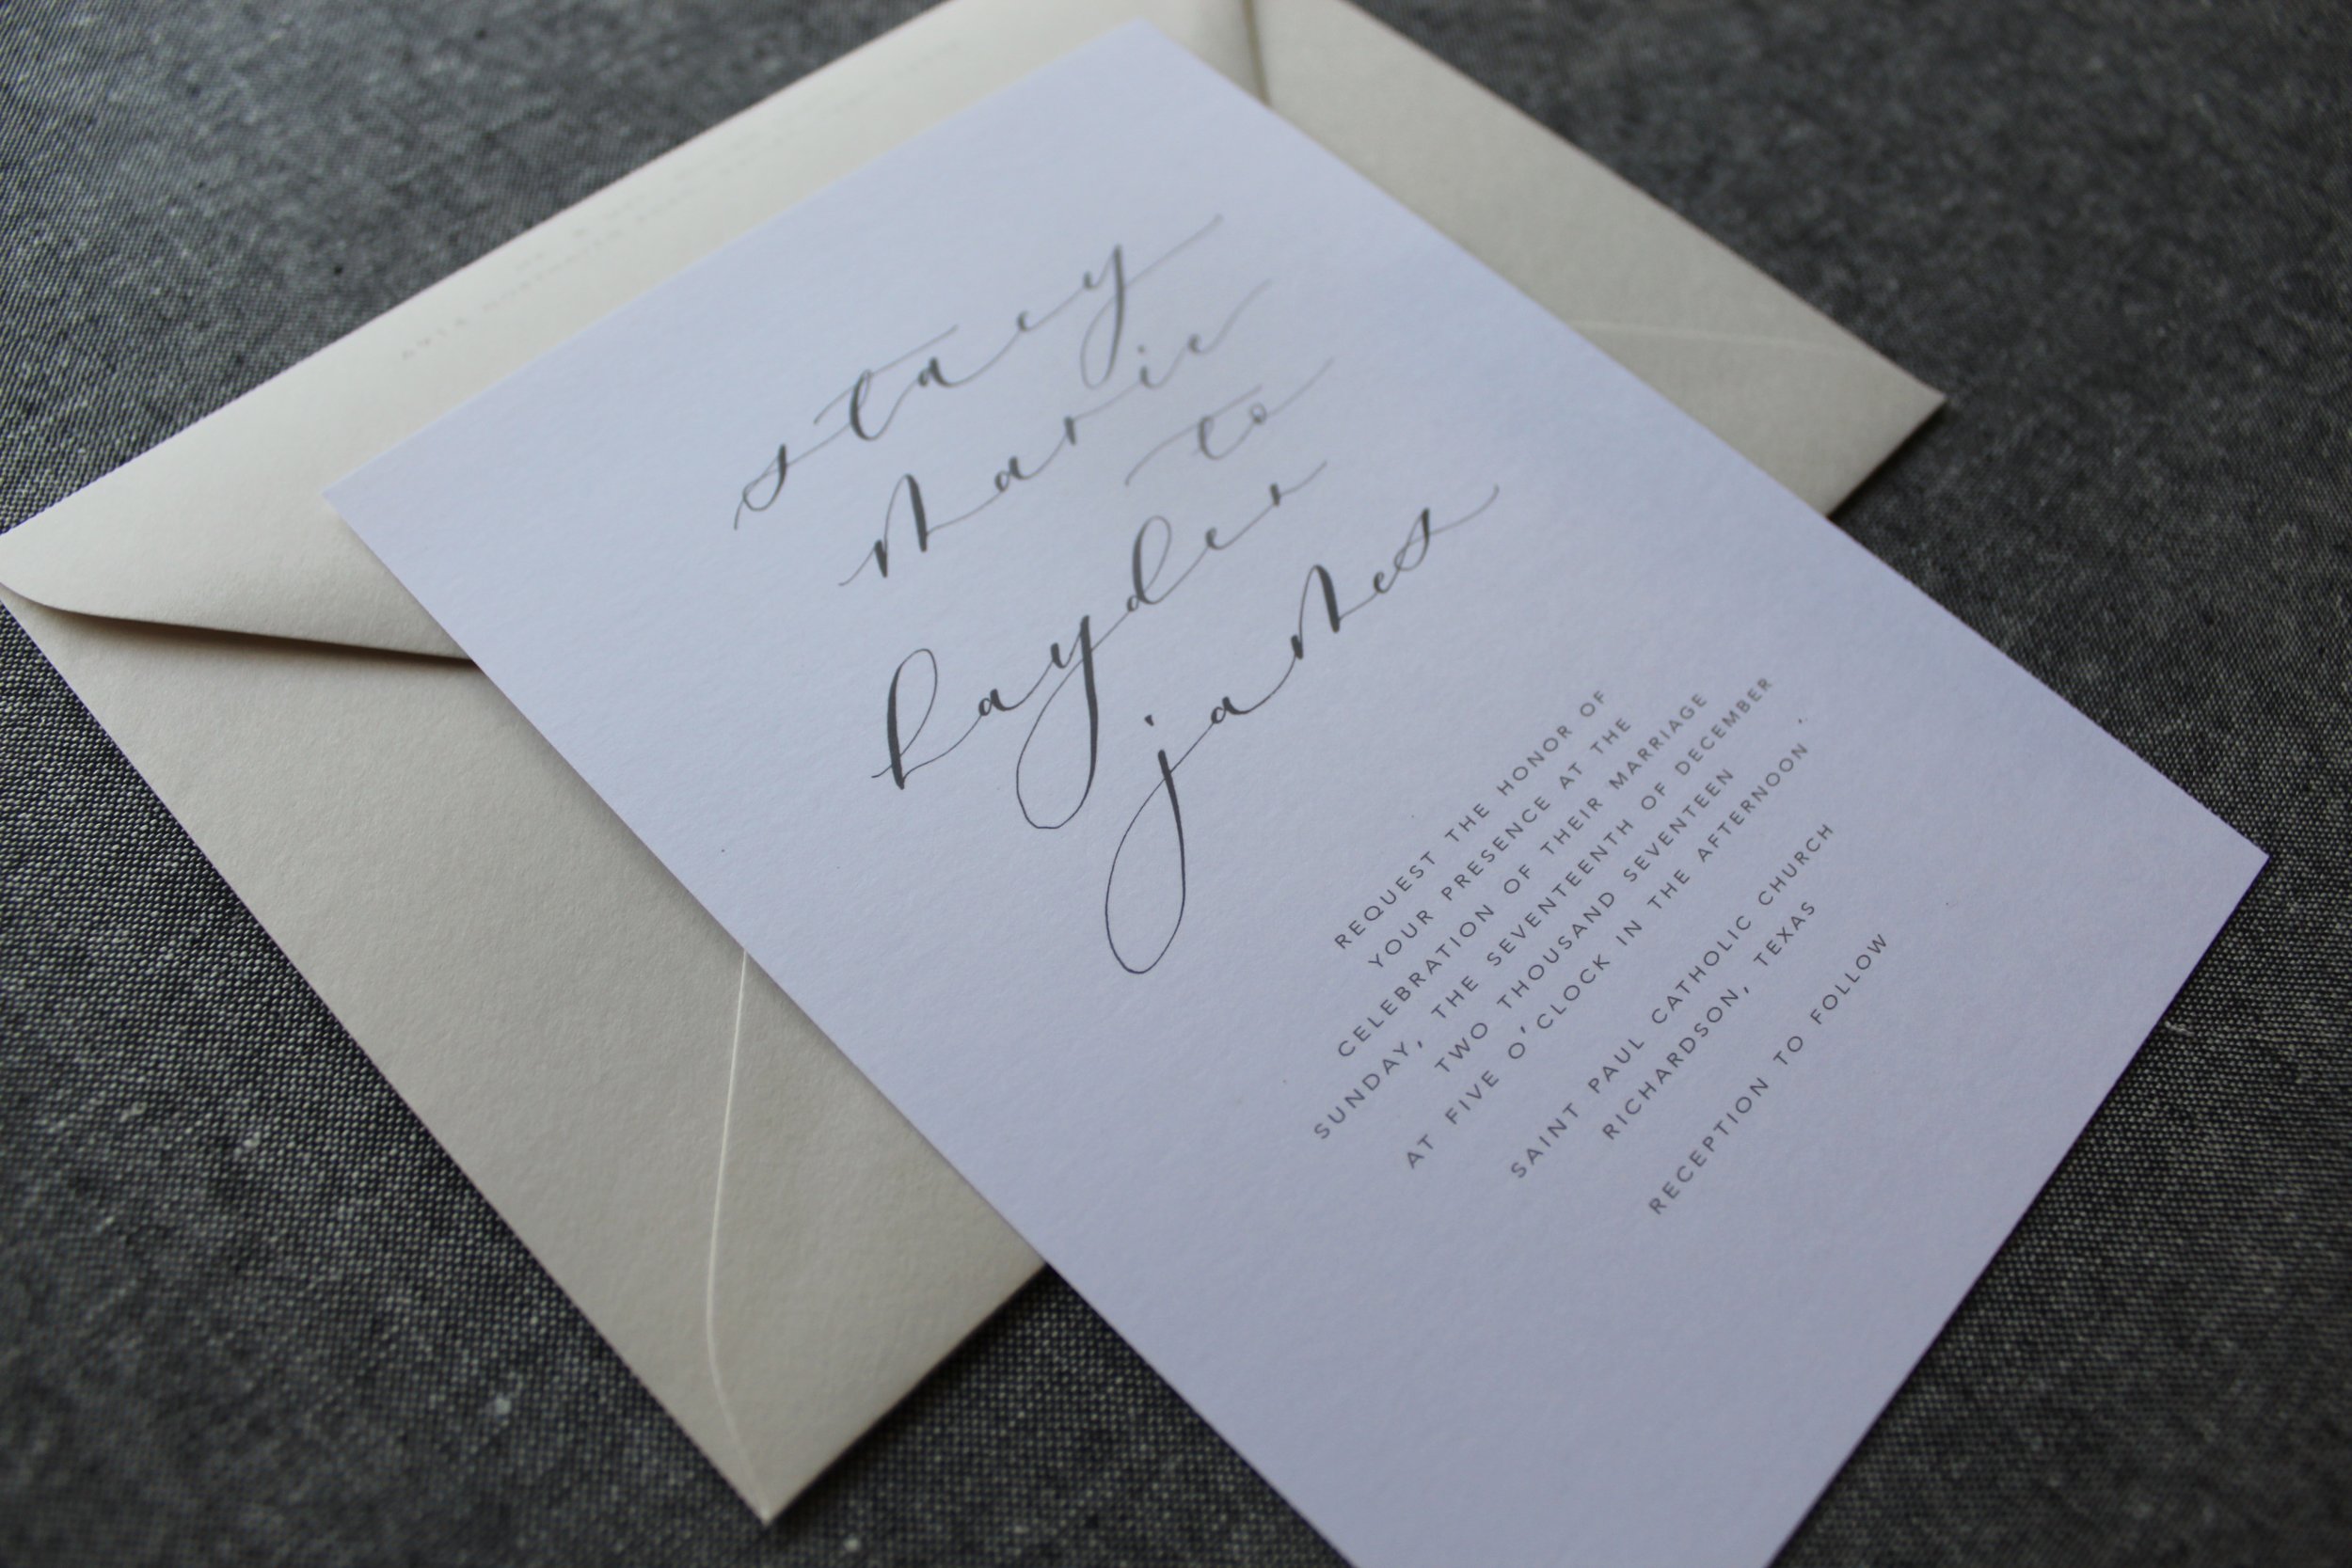 stacy
marie
to
hayden
james
REQUEST THE HONOR OF
YOUR PRESENCE AT THE
CELEBRATION OF THEIR MARRIAGE
SUNDAY, THE SEVENTEENTH OF DECEMBER
TWO THOUSAND SEVENTEEN
AT FIVE O'CLOCK IN THE AFTERNOON
SAINT PAUL CATHOLIC CHURCH
RICHARDSON, TEXAS
RECEPTION TO FOLLOW